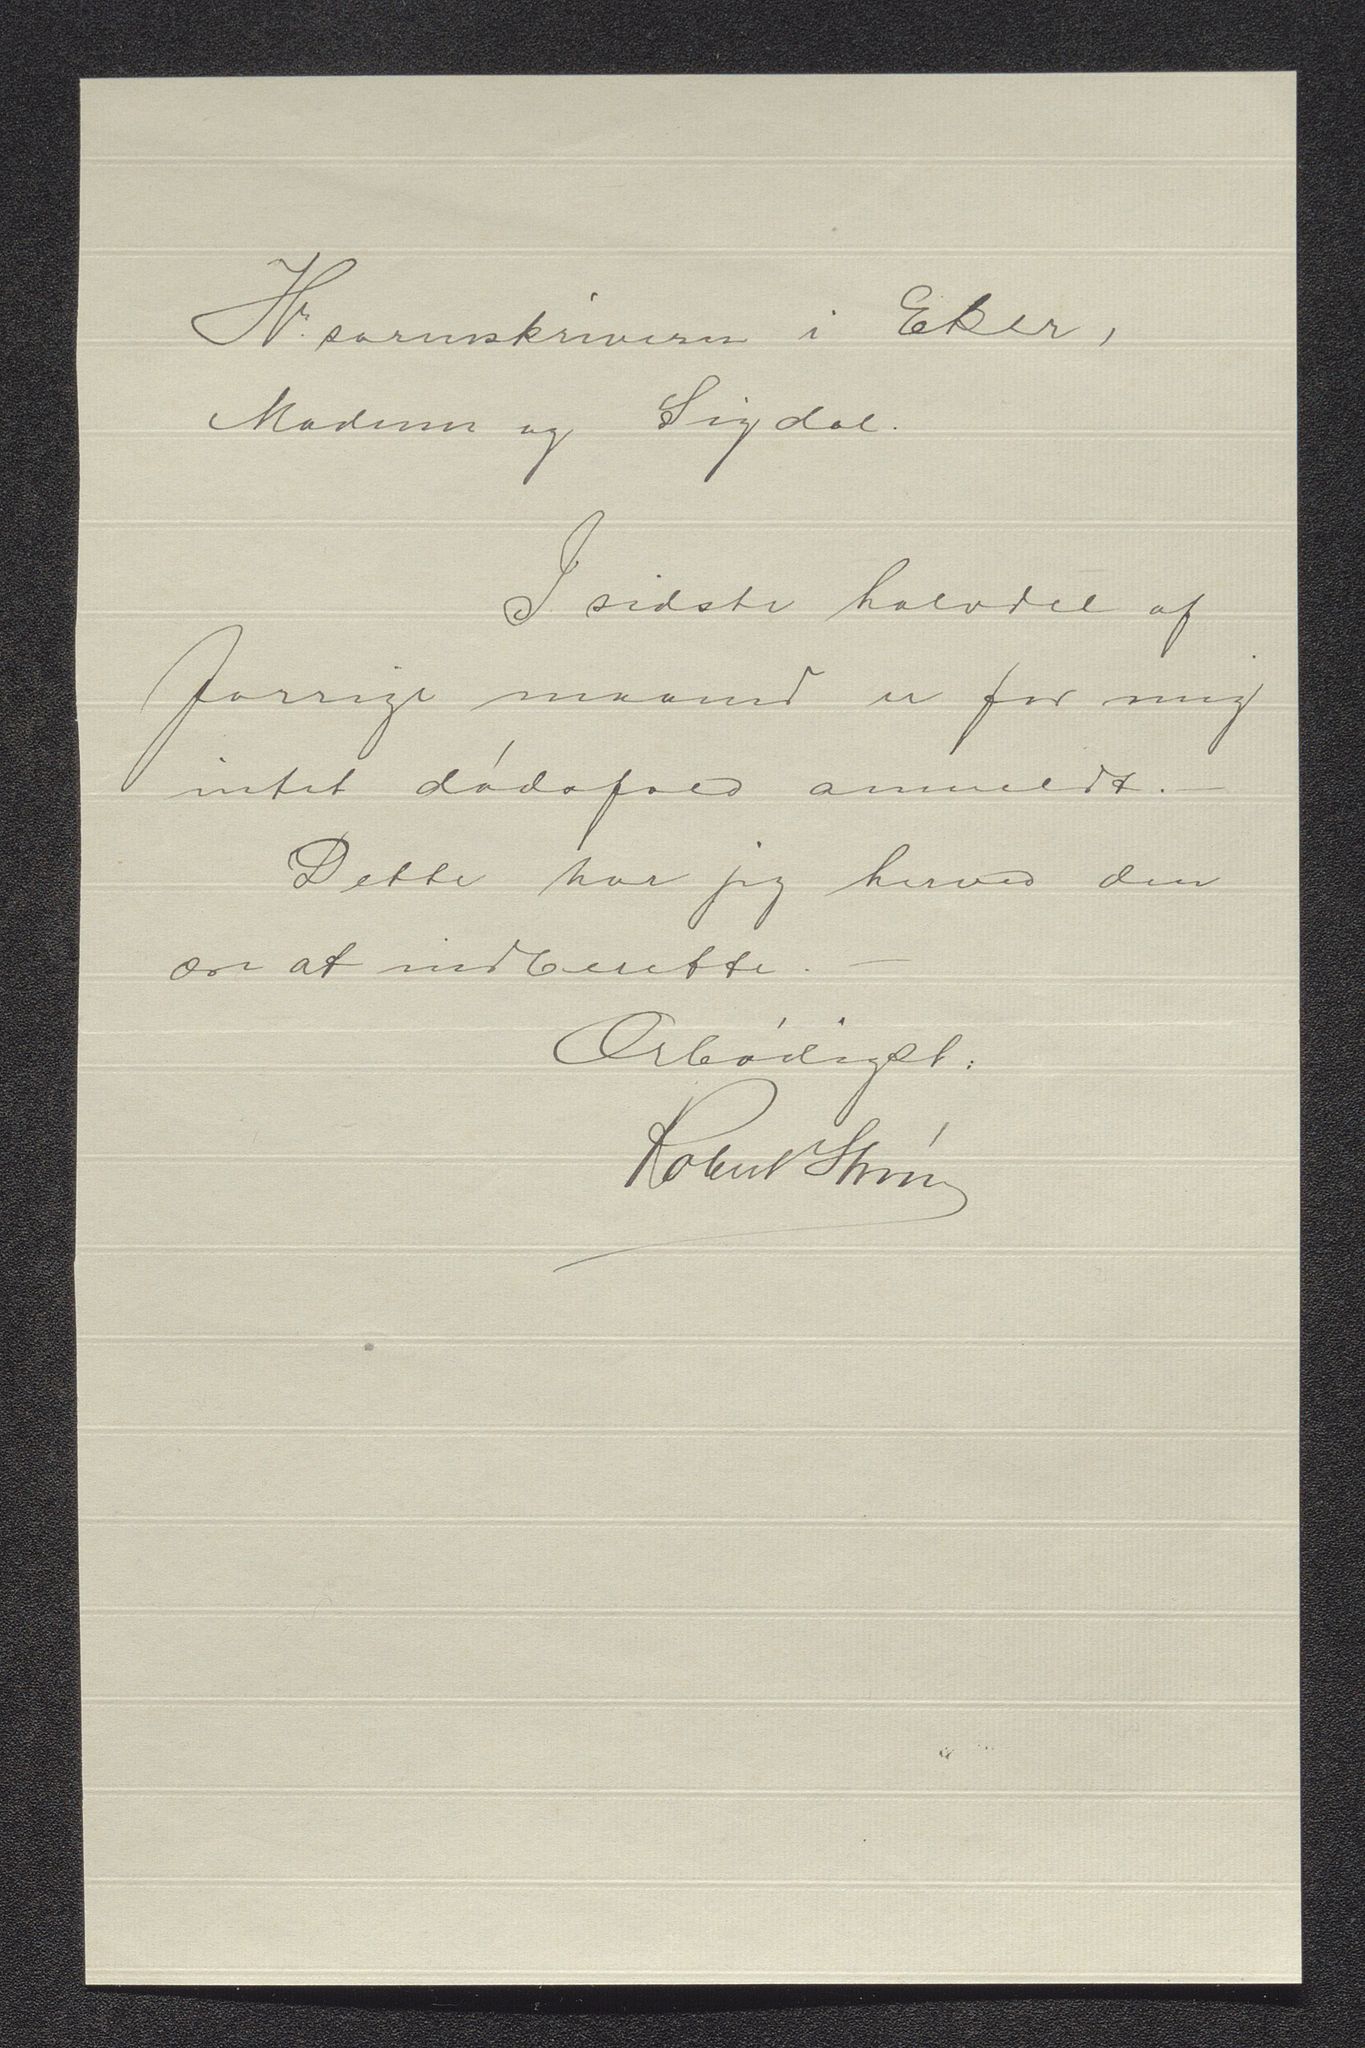 Hr. sorenskriveren i Eker,
Modum og Sigdal.
I sidste halvdel af
forrige maaned er for mig
intet dødsfald anmeldt. —
Dette har jeg herved den
ære at indberette. —
Ærbødigst:
Robert Strøm